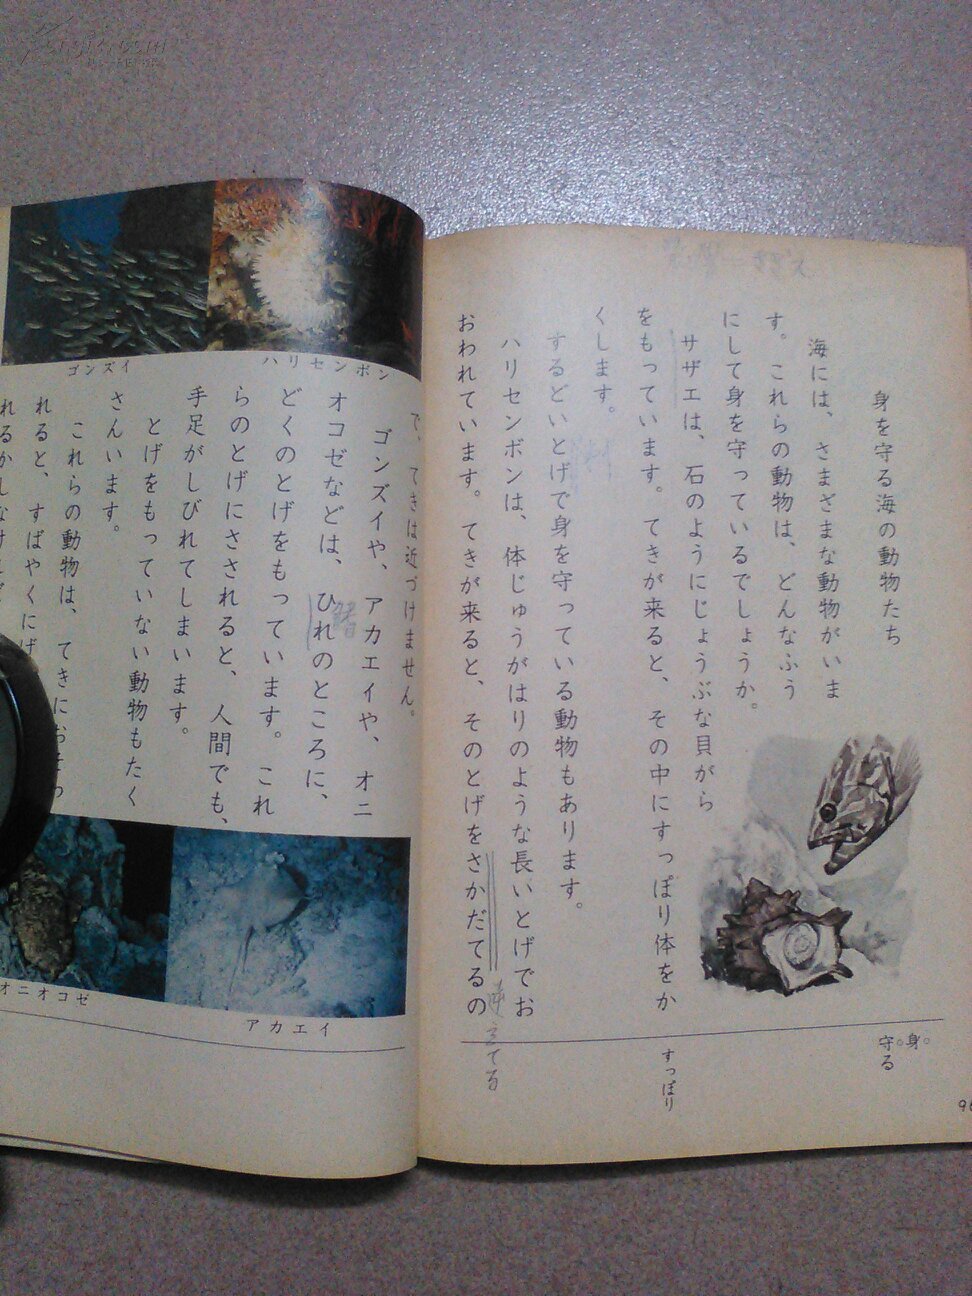 身を守る海の動物たち
海には、さまざまな動物がいま
す。これらの動物は、どんなふう
にして身を守っているでしょうか。
サザエは、石のようにじょうぶな貝がら
をもっています。てきが来ると、その中にすっぽり体をか
くします。
するどいとげで身を守っている動物もあります。
ハリセンボンは、体じゅうがはりのような長いとげでお
おわれています。てきが来ると、そのとげをさかだてるの
さざえ
逆立てる
すっぽり
身。
守る
96
ゴンズイ
ハリセンボン
で、てきは近づけません。
ゴンズイや、アカエイや、オニ
オコゼなどは、ひれのところに、
どくのとげをもっています。これ
らのとげにさされると、人間でも、
手足がしびれてしまいます。
とげをもっていない動物もたく
さんいます。
これらの動物は、てきにおそわ
れると、すばやくにげ
オニオコゼ
アカエイ